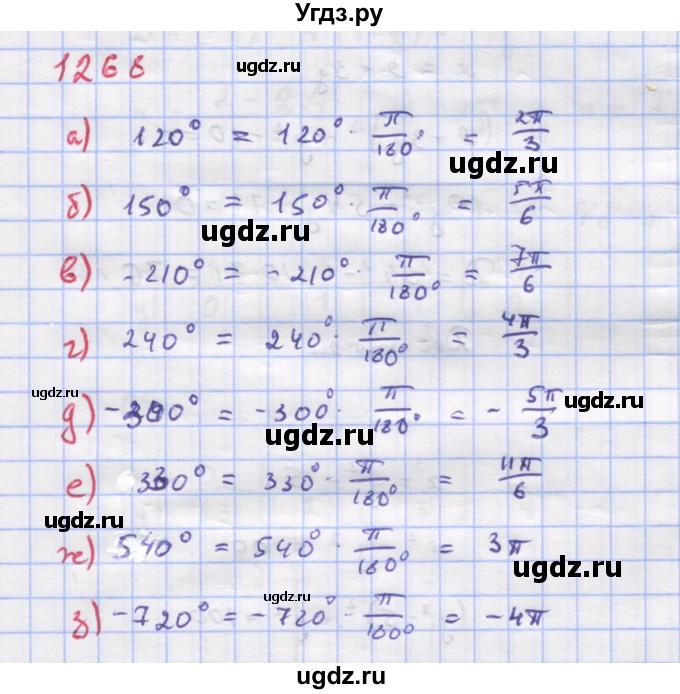 Угдз.ру
1268
ugdz.ru
а) 120° = 120° · π/180° = 2π/3
ugdz.ru
б) 150° = 150° · π/180° = 5π/6
ugdz.ru
ugdz.ru
в) -210° = -210° · π/180° = 7π/6
г) 240° = 240° · π/180° = 4π/3
ugdz.ru
д) -300° = -300° · π/180° = - 5π/3
ugdz.ru
ugdz.ru
е) 330° = 330° · π/180° = 11π/6
ugdz.ru
ж) 540° = 540° · π/180° = 3π
ugdz.ru
ugdz.ru
з) -720° = -720° · π/180° = -4π
ugdz.ru
ugdz.ru